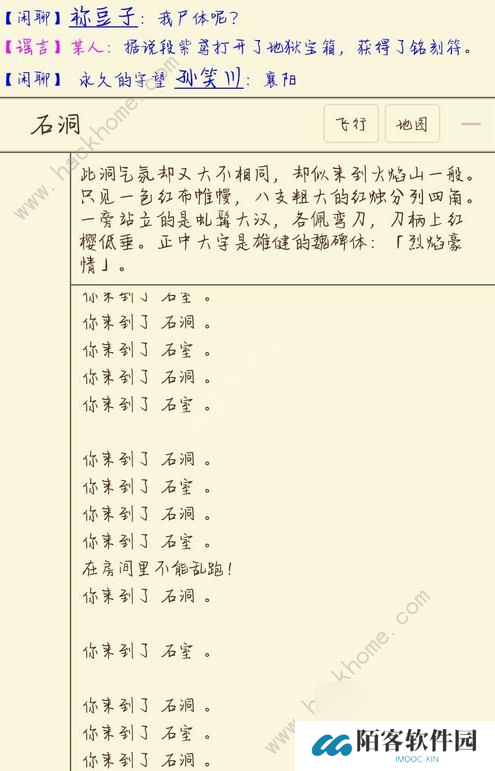 【闲聊】祢豆子：我尸体呢？
【谣言】某人：据说段紫鸾打开了地狱宝箱，获得了铭刻符。
【闲聊】永久的守望 孙笑川：襄阳
石洞
飞行
地图
此洞气氛却又大不相同，却似来到火焰山一般。
只见一色红布帷幔，八支粗大的红烛分列四角。
一旁站立的是虬髯大汉，各佩弯刀，刀柄上红
樱低垂。正中大字是雄健的魏碑体：「烈焰豪
情」。
你来到了 石室 。
你来到了 石洞 。
你来到了 石室 。
你来到了 石洞 。
你来到了 石室 。
你来到了 石洞 。
你来到了 石室 。
你来到了 石洞 。
你来到了 石室 。
在房间里不能乱跑！
你来到了 石洞 。
你来到了 石室 。
你来到了 石洞 。
你来到了 石室 。
你来到了 石洞 。
www.hackhome.com
www.hackhome.com
陌客软件园
IMOOC.INV